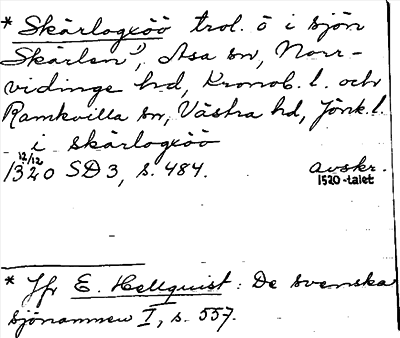 * Skärlogxöö trol. ö i sjön
Skärlen*, Asa sn, Norr-
vidinge hd, Kronob. l. och
Ramkvilla sn, Västra hd, Jönk. l.
i skärlogxöö
12/12
1320 SD 3, s. 484. avskr.
1520-talet
* Jfr E. Hellquist: De svenska
sjönamnen I, s. 557.